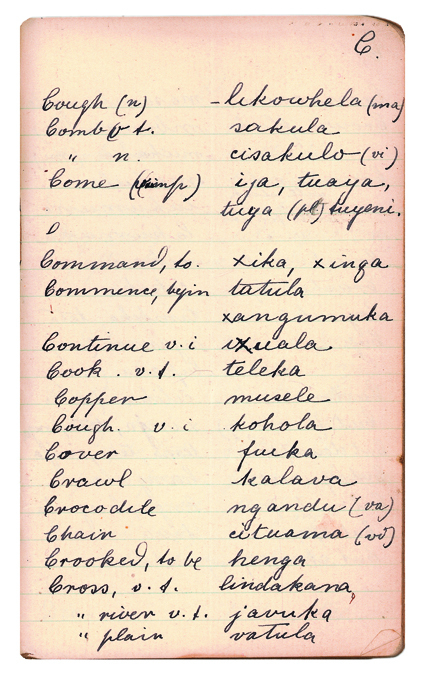 C.
Cough (n) - likowhela (ma)
Comb v t. sakula
" n. cisakulo (vi)
Come (imp) ija, tuaya,
tuya (pl) tuyeni.
Command, to. xika, xinga
Commence, begin tutula
xangumuka
Continue v. i
Cook. v. t. teleka
Copper musele
Cough. v. i kohola
Cover fuika
Crawl kalava
Crocodile ngandu (va)
Chair cituama (vi)
Crooked, to be henga
Cross, v. t. lindakana,
" river v. t. javuka
" plain vatula